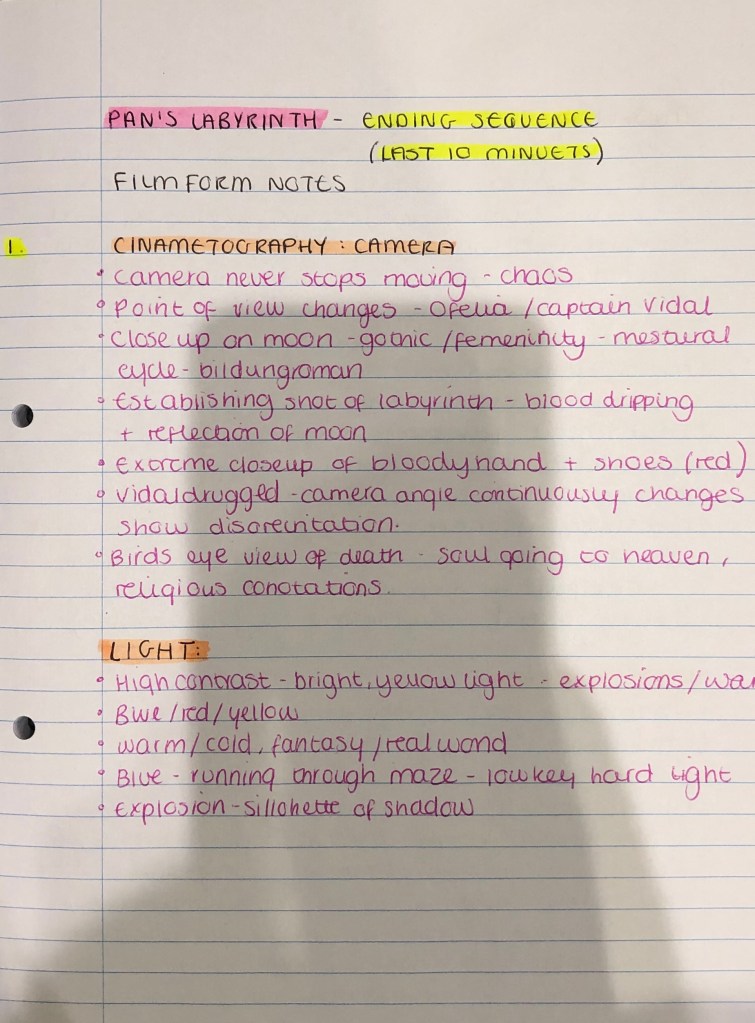 PAN'S LABYRINTH - ENDING SEQUENCE
(LAST 10 MINUETS)
FILM FORM NOTES
1. CINAMETOGRAPHY : CAMERA
• Camera never stops moving - chaos
• Point of view changes - Ofelia / captain vidal
• Close up on moon - gothic / femenincity - mestural
cycle - bildungroman
• Establishing shot of labyrinth - blood dripping
+ reflection of moon
• Extreme closeup of bloody hand + shoes (red)
• Vidal drugged - camera angle continuously changes
show disorecnitation.
• Birds eye view of death - soul going to heaven,
religious conotations.
LIGHT:
• High contrast - bright, yellow light - explosions / war
• Blue / red / yellow
• warm / cold, fantasy / real world
• Blue - running through maze - low key hard light
• Explosion - sillohette of shadow